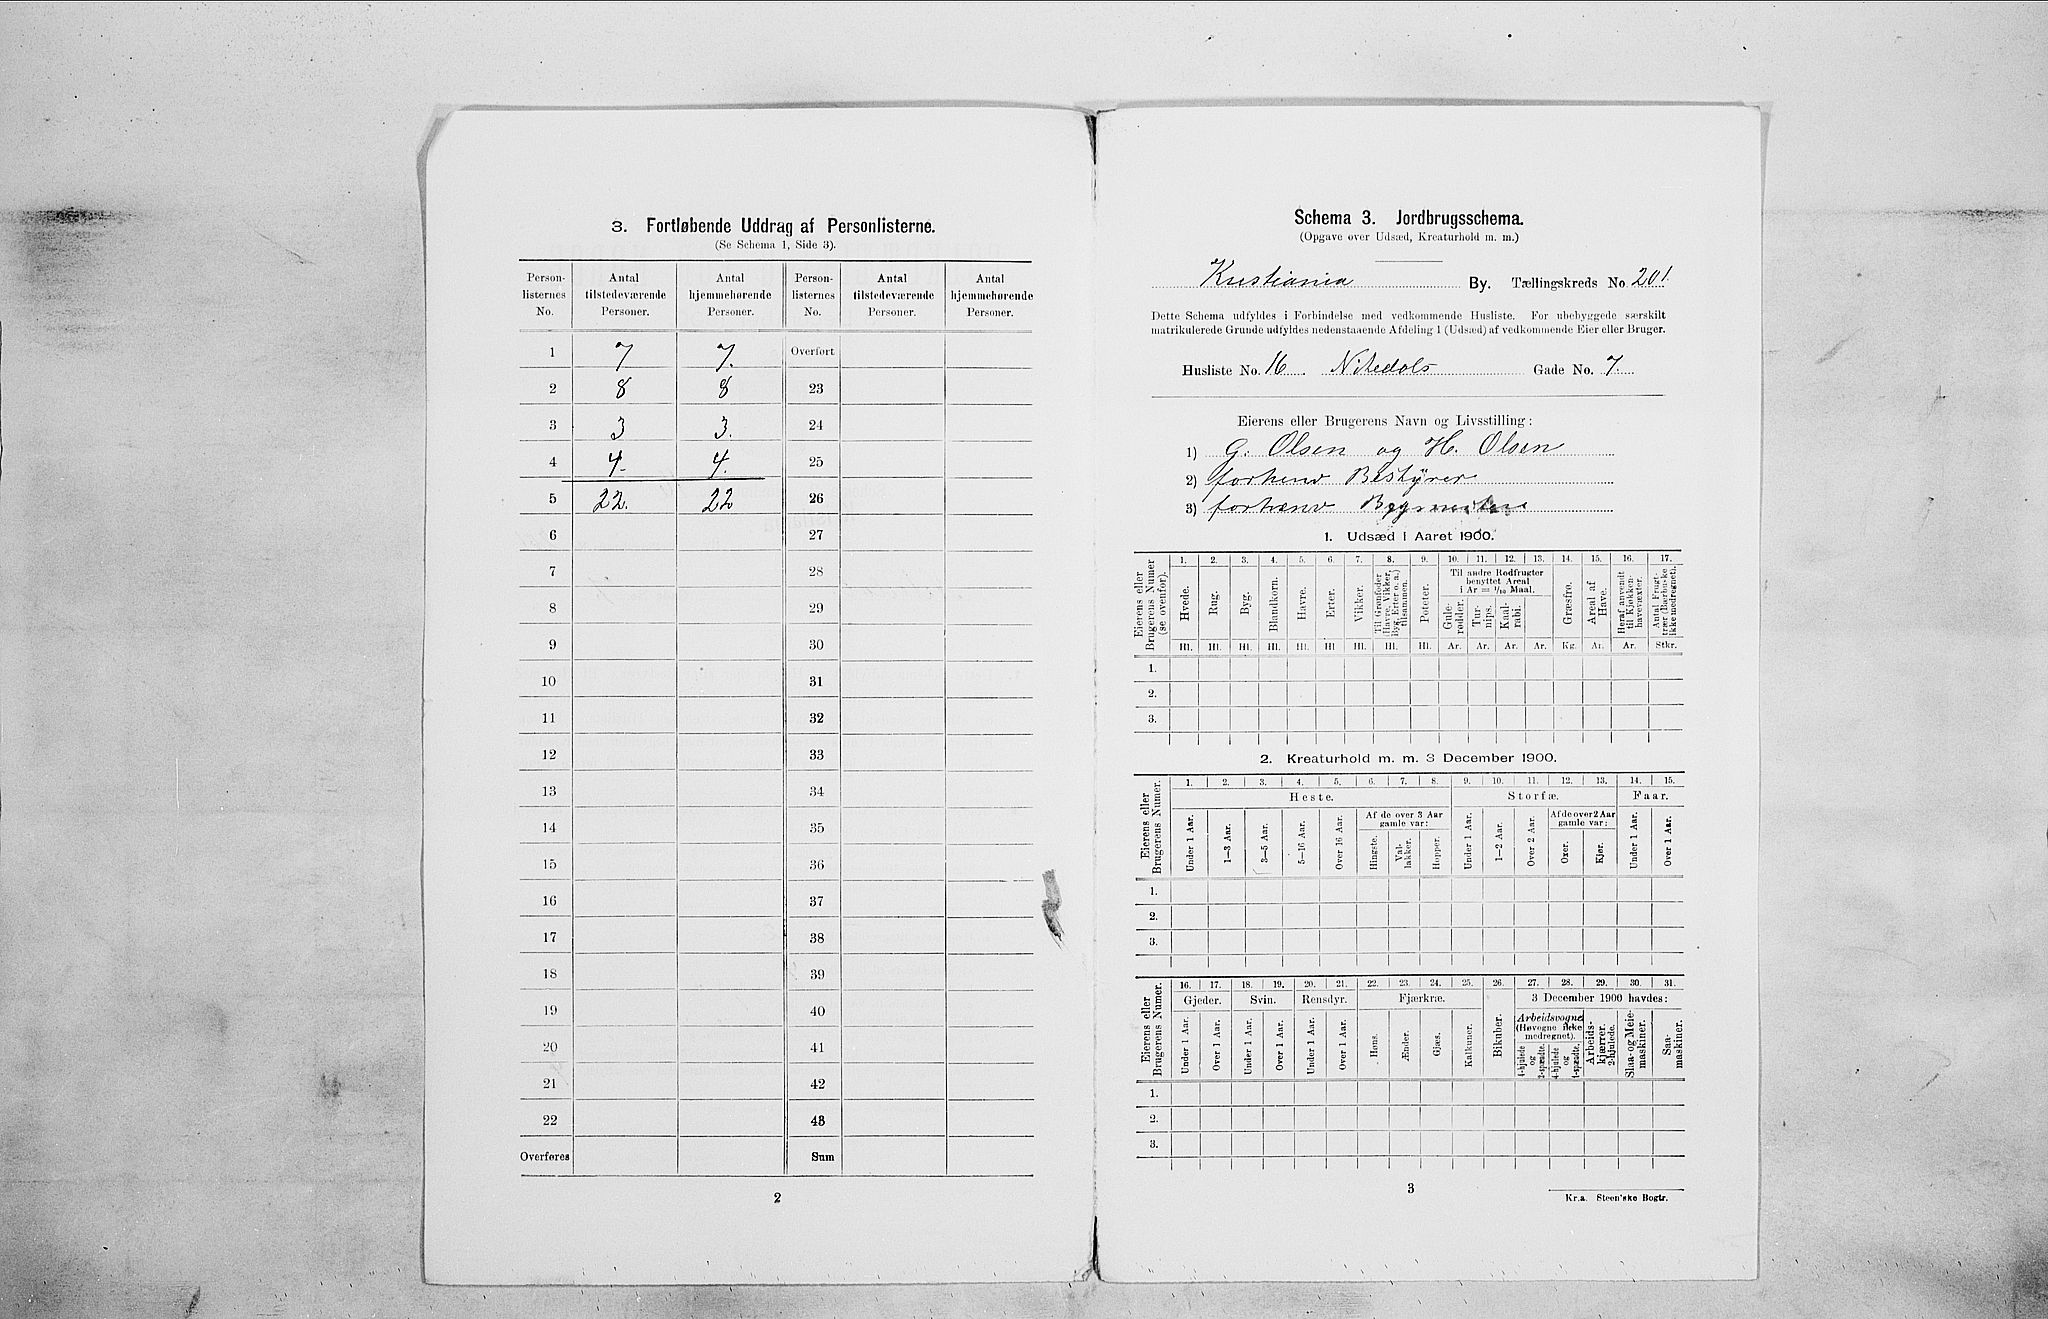 3. Fortløbende Uddrag af Personlisterne.
(Se Schema 1, Side 3).
Person-listernes No. | Antal tilstedeværende Personer. | Antal hjemmehørende Personer. | Person-listernes No. | Antal tilstedeværende Personer. | Antal hjemmehørende Personer.
1 | 7 | 7. | Overført
2 | 8 | 8 | 23
3 | 3 | 3. | 24
4 | 4. | 4. | 25
5 | 22. | 22 | 26
6 | 27
7 | 28
8 | 29
9 | 30
10 | 31
11 | 32
12 | 33
13 | 34
14 | 35
15 | 36
16 | 37
17 | 38
18 | 39
19 | 40
20 | 41
21 | 42
22 | 43
Overføres | Sum
2
Schema 3. Jordbrugsschema.
(Opgave over Udsæd, Kreaturhold m. m.)
Kristiania By. Tællingskreds No. 201
Dette Schema udfyldes i Forbindelse med vedkommende Husliste. For ubebyggede særskilt
matrikulerede Grunde udfyldes nedenstaaende Afdeling 1 (Udsæd) af vedkommende Eier eller Bruger.
Husliste No. 16 Nitedals Gade No. 7.
Eierens eller Brugerens Navn og Livsstilling:
1) G. Olsen og H. Olsen
2) forhenv Bestyrer
3) forhenv
1. Udsæd i Aaret 1900.
Eierens eller Brugerens Numer (se ovenfor). | 1. | 2. | 3. | 4. | 5. | 6. | 7. | 8. | 9. | 10. | 11. | 12. | 13. | 14. | 15. | 16. | 17.
Hvede. | Rug. | Byg. | Blandkorn. | Havre. | Erter. | Vikker. | Til Grønfoder (Havre, Vikker, Byg, Erter o. a.) tilsammen. | Poteter. | Til andre Rodfrugter benyttet Areal i Ar = 1/10 Maal. | Gule-rødder. | Tur-nips. | Kaal-rabi. | Græsfrø. | Areal af Have. | Heraf anvendt til Kjøkken-havevæxter. | Antal Frugt-trær (Bærbuske ikke medregnet).
Hl. | Hl. | Hl. | Hl. | Hl. | Hl | Hl. | Hl. | Hl. | Ar. | Ar. | Ar. | Ar. | Kg. | Ar. | Ar. | Stkr.
1.
2.
3.
2. Kreaturhold m. m. 3 December 1900.
Eierens eller Brugerens Numer. | 1. | 2. | 3. | 4. | 5. | 6. | 7. | 8. | 9. | 10. | 11. | 12. | 13. | 14. | 15.
Heste. | Storfæ. | Faar.
Under 1 Aar. | 1—3 Aar. | 3—5 Aar. | 5—16 Aar. | Over 16 Aar. | Af de over 3 Aar gamle var: | Hingste. | Val-lakker. | Hopper. | Under 1 Aar. | 1—2 Aar. | Over 2 Aar. | Af de over 2 Aar gamle var: | Oxer. | Kjør. | Under 1 Aar. | Over 1 Aar.
1.
2.
3.
Eierens eller Brugerens Numer. | 16. | 17. | 18. | 19. | 20. | 21. | 22. | 23. | 24. | 25. | 26. | 27. | 28. | 29. | 30. | 31.
Gjeder. | Svin. | Rensdyr. | Fjærkræ. | Bikuber. | 3 December 1900 havdes:
Under 1 Aar. | Over 1 Aar. | Under 1 Aar. | Over 1 Aar. | Under 1 Aar. | Over 1 Aar. | Høns. | Ænder. | Gjæs. | Kalkuner. | Arbeidsvogne (Høvogne ikke medregnet). | 4-hjulede og 2-spædte. | 4-hjulede og 1-spædte. | Arbeids-kjærrer. 2-hjulede. | Slaa- og Meie-maskiner. | Saa-maskiner.
1.
2.
3.
3
Kr.a. Steen'ske Bogtr.